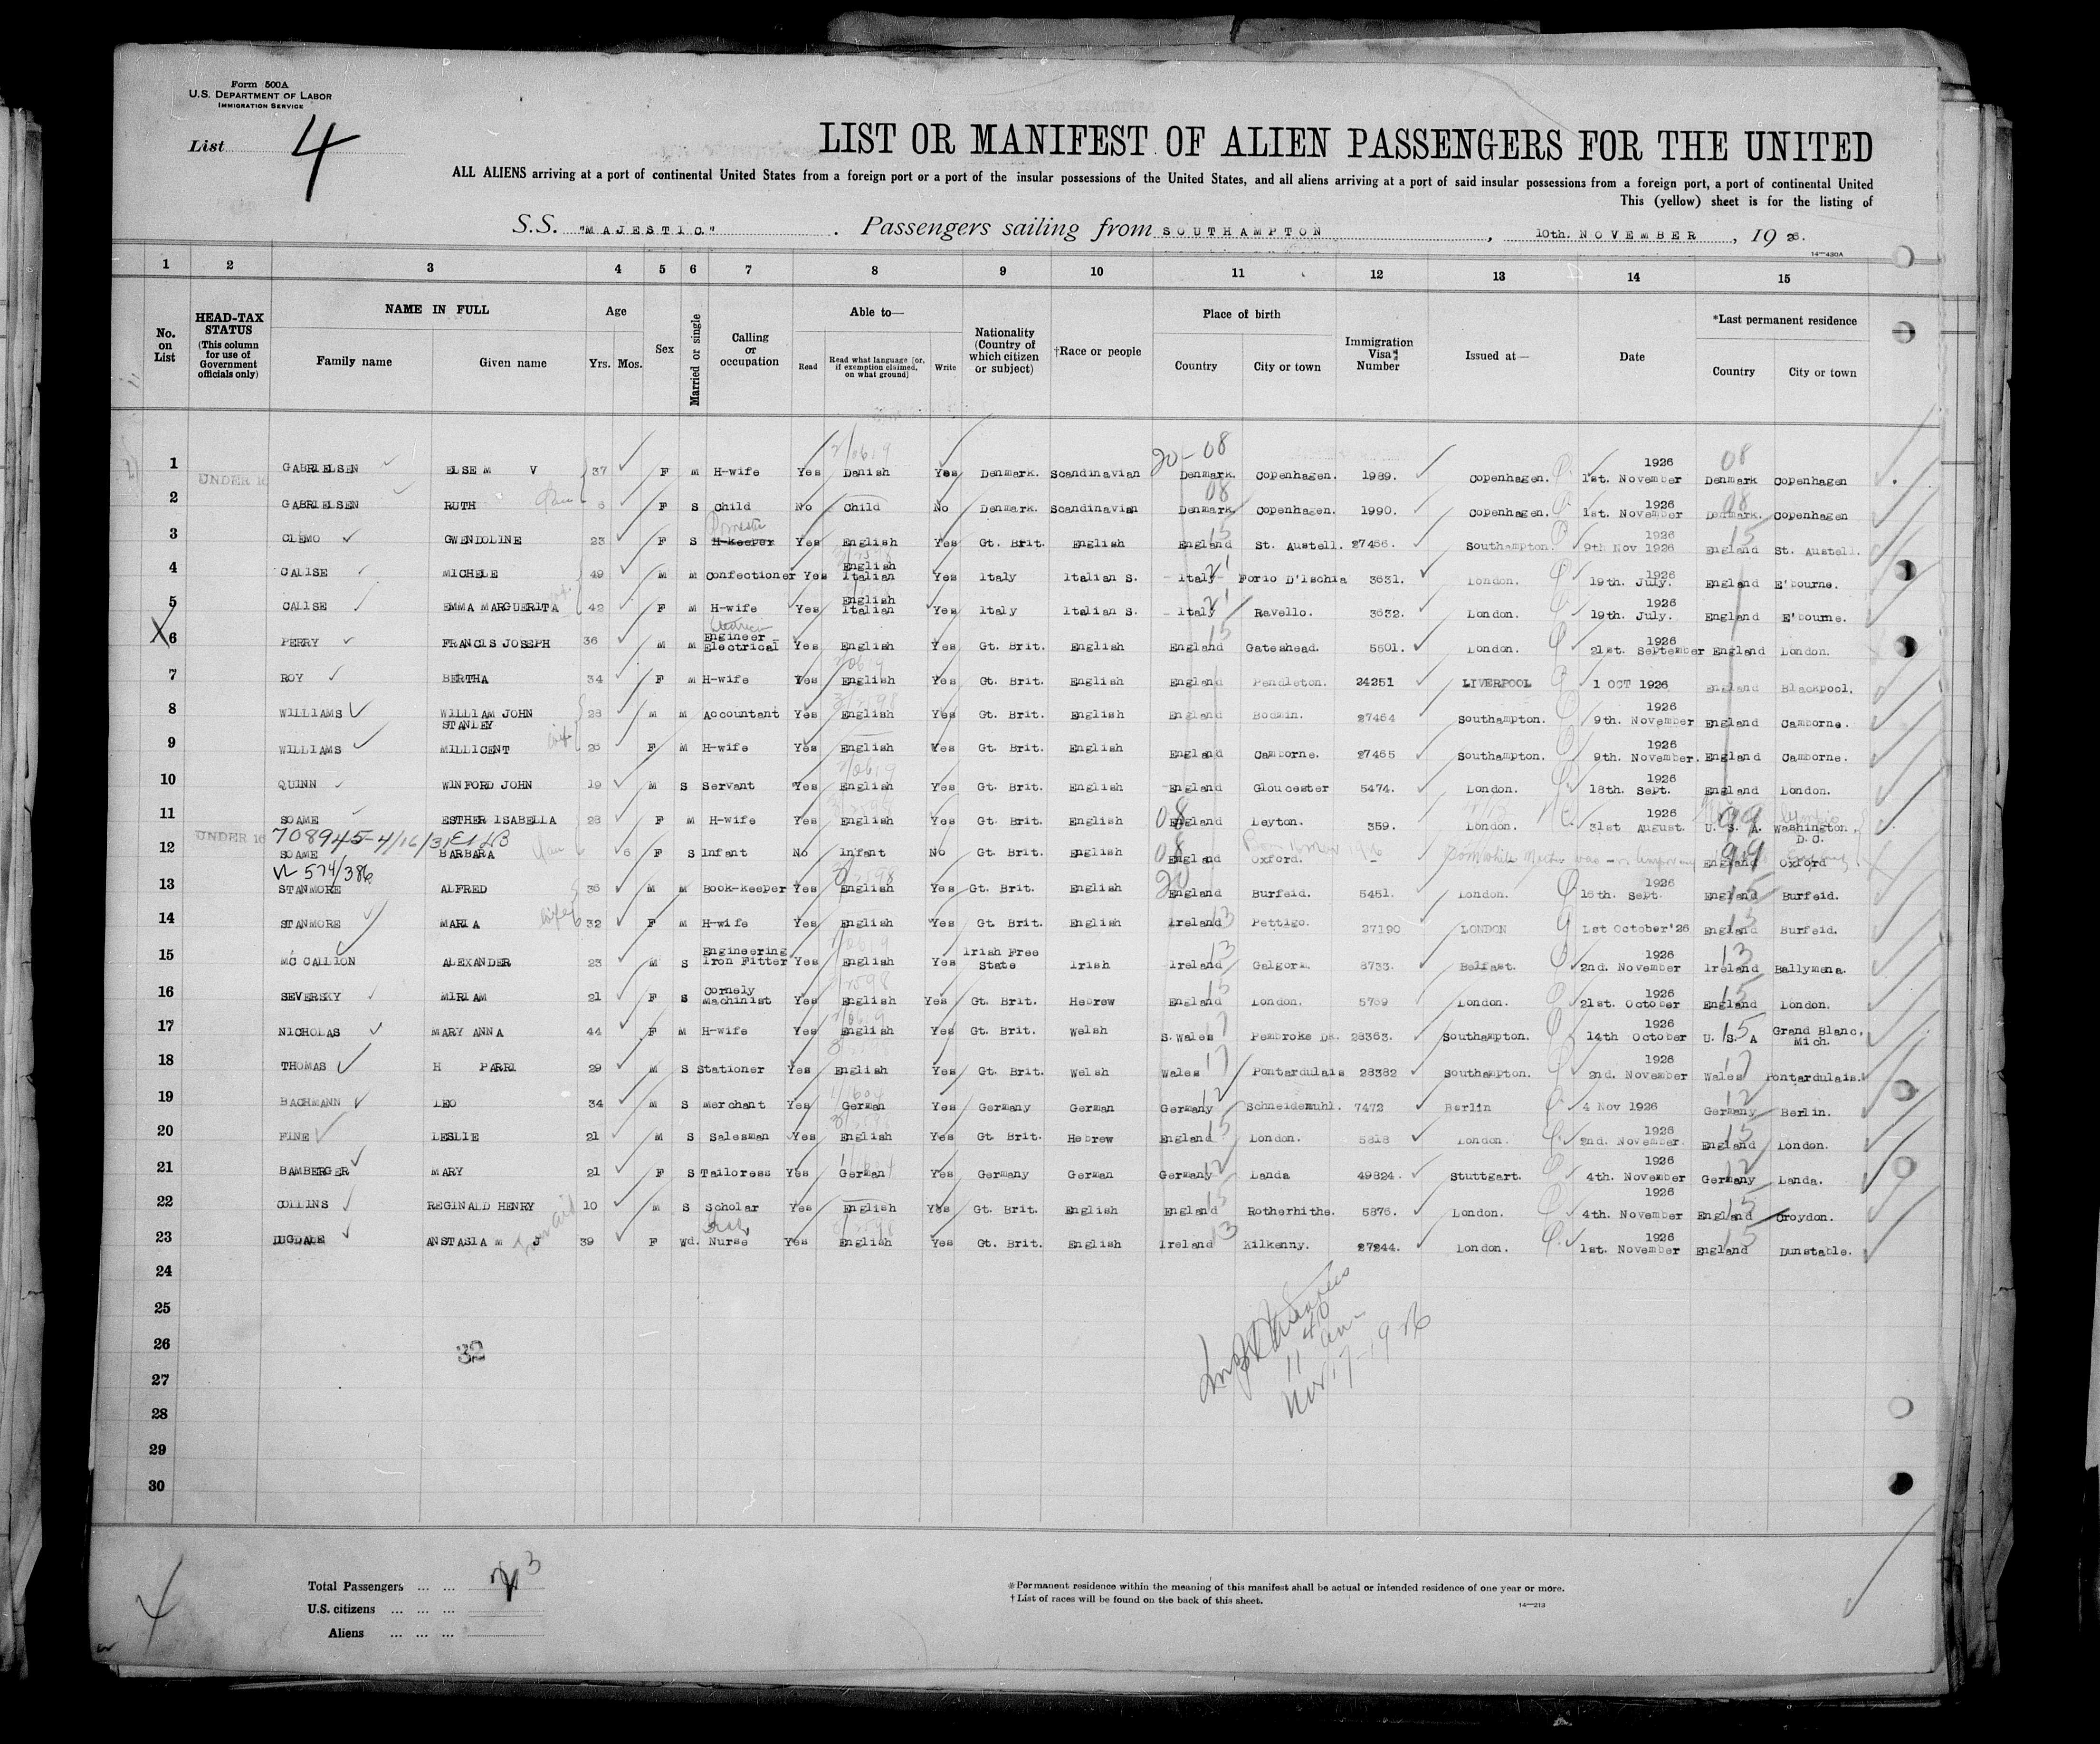 Form 500A
U.S. DEPARTMENT OF LABOR
IMMIGRATION SERVICE
List 4
LIST OR MANIFEST OF ALIEN PASSENGERS FOR THE UNITED
ALL ALIENS arriving at a port of continental United States from a foreign port or a port of the insular possessions of the United States, and all aliens arriving at a port of said insular possessions from a foreign port, a port of continental United
This (yellow) sheet is for the listing of
S.S. "MAJESTIC" . Passengers sailing from SOUTHAMPTON , 10th. NOVEMBER , 1926.
14—430A
1 2 3 4 5 6 7 8 9 10 11 12 13 14 15
No. on List
HEAD-TAX STATUS (This column for use of Government officials only)
NAME IN FULL
Family name Given name
Age
Yrs. Mos.
Sex
Married or single
Calling or occupation
Able to—
Read Read what language [or, if exemption claimed, on what ground] Write
Nationality (Country of which citizen or subject)
†Race or people
Place of birth
Country City or town
Immigration Visa Number
Issued at—
Date
*Last permanent residence
Country City or town
1 GABRIELSEN ELSE M V 37 F M H-wife Yes Danish Yes Denmark. Scandinavian Denmark. Copenhagen. 1989. Copenhagen. 1st. November 1926 Denmark Copenhagen
UNDER 16
2 GABRIELSEN RUTH 6 F S Child No Child No Denmark. Scandinavian Denmark. Copenhagen. 1990. Copenhagen. 1st. November 1926 Denmark. Copenhagen
3 CLEMO GWENDOLINE 23 F S H-keeper Domestic Yes English Yes Gt. Brit. English England St. Austell. 27466. Southampton. 9th Nov 1926 1926 England St. Austell.
4 CALISE MICHELE 49 M M Confectioner Yes English Italian Yes Italy Italian S. Italy Forio D'Ischia 3631. London. 19th. July. 1926 England E'bourne.
5 CALISE EMMA MARGUERITA 42 F M H-wife Yes English Italian Yes Italy Italian S. Italy Ravello. 3632. London. 19th. July. 1926 England E'bourne.
X 6 PERRY FRANCIS JOSEPH 36 M M Engineer - Electrical Yes English Yes Gt. Brit. English England Gateshead. 5501. London. 21st. September 1926 England London.
7 ROY BERTHA 34 F M H-wife Yes English Yes Gt. Brit. English England Pendleton. 24251 LIVERPOOL 1 OCT 1926 England Blackpool.
8 WILLIAMS WILLIAM JOHN STANLEY 28 M M Accountant Yes English Yes Gt. Brit. English England Bodmin. 27464 Southampton. 9th. November 1926 England Camborne.
9 WILLIAMS MILLICENT wife 26 F M H-wife Yes English Yes Gt. Brit. English England Camborne. 27465 Southampton. 9th. November. 1926 England Camborne.
10 QUINN WINFORD JOHN 19 M S Servant Yes English Yes Gt. Brit. English England Gloucester 5474. London. 18th. Sept. 1926 England London.
11 SOAME ESTHER ISABELLA 28 F M H-wife Yes English Yes Gt. Brit. English England Leyton. 359. London. 31st August. 1926 U. S. A. Washington, D.C.
UNDER 16 708945-4/16/31
12 SOAME BARBARA 6 F S Infant No Infant No Gt. Brit. English England Oxford. - England Oxford
574/386
13 STANMORE ALFRED 36 M M Book-keeper Yes English Yes Gt. Brit. English England Burfeid. 5451. London. 16th. Sept. 1926 England Burfeid.
14 STANMORE MARIA wife 32 F M H-wife Yes English Yes Gt. Brit. English Ireland Pettigo. 27190 LONDON 1st October'26 England Burfeid.
15 MC CALLION ALEXANDER 23 M S Engineering Iron Fitter Yes English Yes Irish Free State Irish Ireland Galgorm. 8733. Belfast. 2nd. November 1926 Ireland Ballymena.
16 SEVERSKY MIRIAM 21 F S Cornely Machinist Yes English Yes Gt. Brit. Hebrew England London. 5769 London. 21st. October 1926 England London.
17 NICHOLAS MARY ANNA 44 F M H-wife Yes English Yes Gt. Brit. Welsh S. Wales Pembroke Dk. 28363. Southampton. 14th October 1926 U. S. A Grand Blanc, Mich.
18 THOMAS H PARRI 29 M S Stationer Yes English Yes Gt. Brit. Welsh Wales Pontardulais 28382 Southampton. 2nd. November 1926 Wales Pontardulais.
19 BACHMANN LEO 34 M S Merchant Yes German Yes Germany German Germany Schneidemuhl. 7472 Berlin 4 Nov 1926 Germany Berlin.
20 FINE LESLIE 21 M S Salesman Yes English Yes Gt. Brit. Hebrew England London. 5818 London. 2nd. November. 1926 England London.
21 BAMBERGER MARY 21 F S Tailoress Yes German Yes Germany German Germany Landa 49824. Stuttgart. 4th. November 1926 Germany Landa.
22 COLLINS REGINALD HENRY 10 M S Scholar Yes English Yes Gt. Brit. English England Rotherhithe. 5876. London. 4th. November 1926 England Croydon.
23 DUGDALE ANSTASIA M J 39 F Wd. Nurse Yes English Yes Gt. Brit. English Ireland Kilkenny. 27244. London. 1st. November 1926 England Dunstable.
24
25
26
27
28
29
30
32
11 40 am
Nov 17-1926
Total Passengers ... ... 23
U.S. citizens ... ... ...
Aliens ... ... ...
*Permanent residence within the meaning of this manifest shall be actual or intended residence of one year or more.
† List of races will be found on the back of this sheet.
14—213